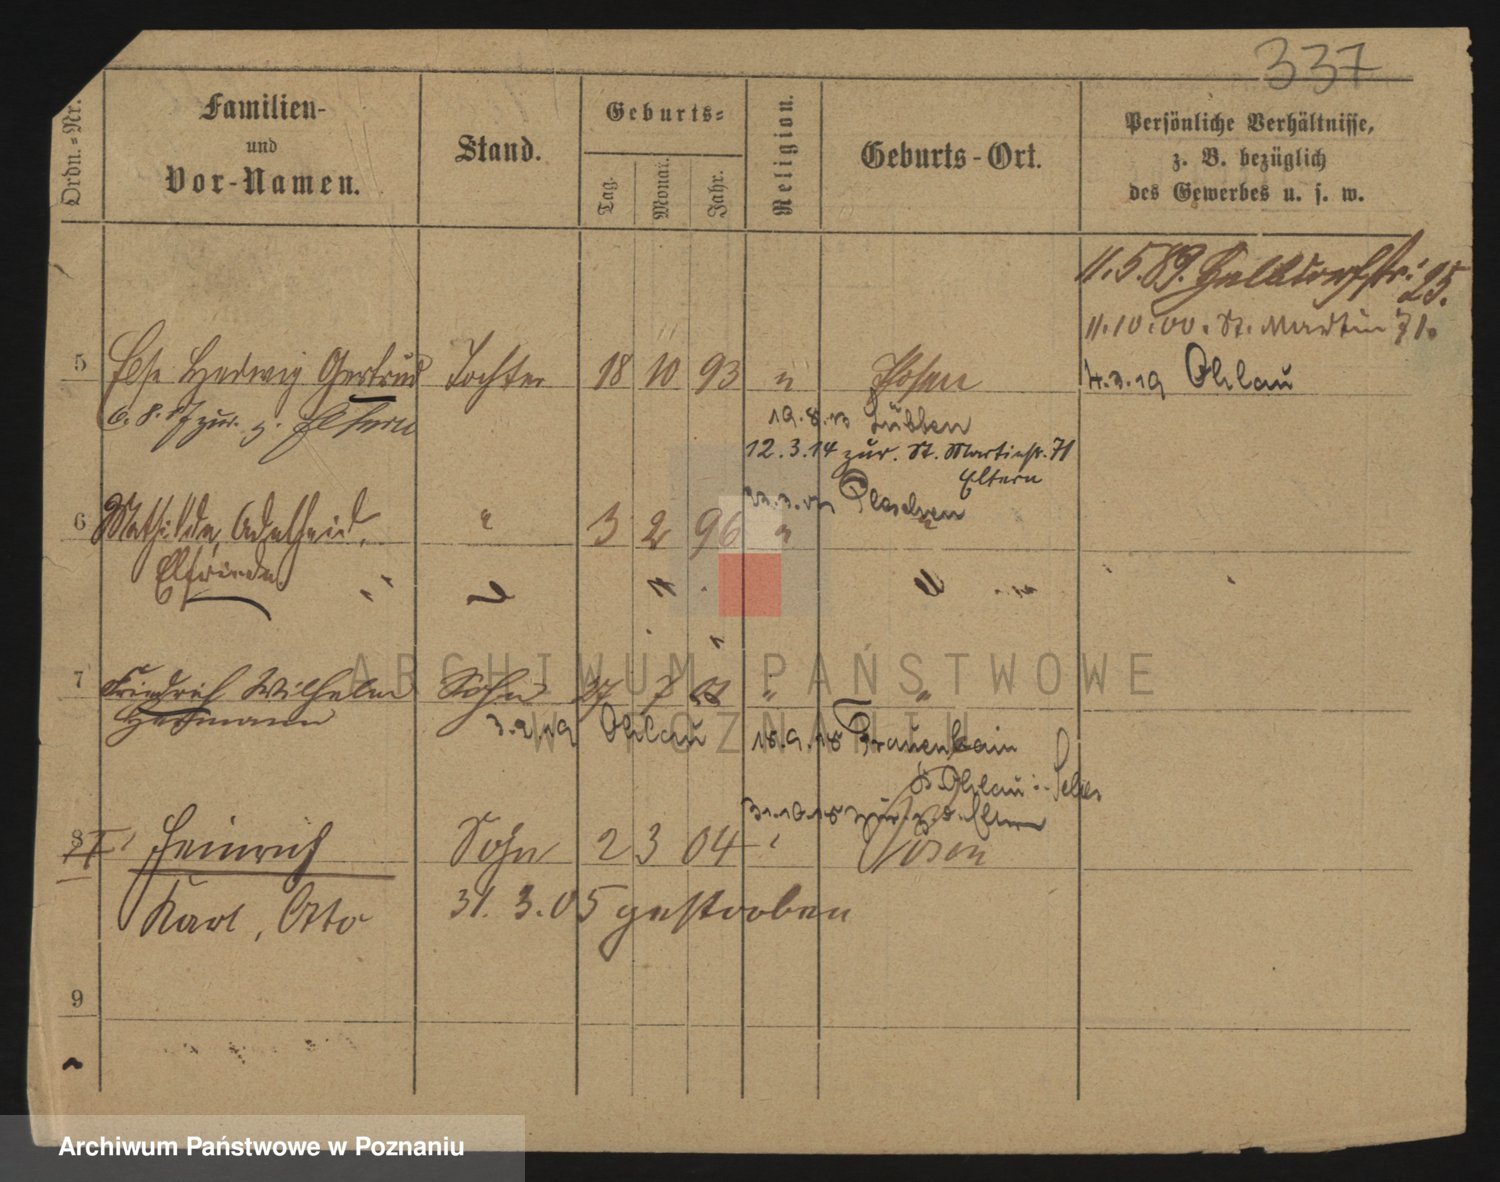 337
Ordn.-Nr.
Familien-
und
Vor-Namen.
Stand.
Geburts-
Tag.
Monat.
Jahr.
Religion.
Geburts-Ort.
Persönliche Verhältnisse,
z. B. bezüglich
des Gewerbes u. s. w.
11.5.89.
25.
11.10.00. St. Martin 71.
5 Else Hedwig Gertrud Tochter 18 10 93 " Posen
Ohlau
6. 8. zur. z. Eltern
19.8.13 Lübben
12.3.14 zur. St. Martinstr. 71
Eltern
Pleschen
6 Mathilde, Adelheid, " 3 2 96 " "
Elfriede
7 Friedrich Wilhelm Sohn 27 7 " "
Hermann
Ohlau 18.9.18 Frauenhain
Ohlau
31.10.18 zur. z. d. Eltern
8 Heinrich Sohn 2 3 04 " Posen
Karl, Otto 31. 3. 05 gestorben
9
ARCHIWUM PAŃSTWOWE
W POZNANIU
Archiwum Państwowe w Poznaniu